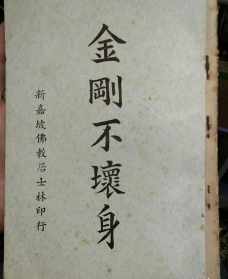 金剛不壞身
新嘉坡佛教居士林印行